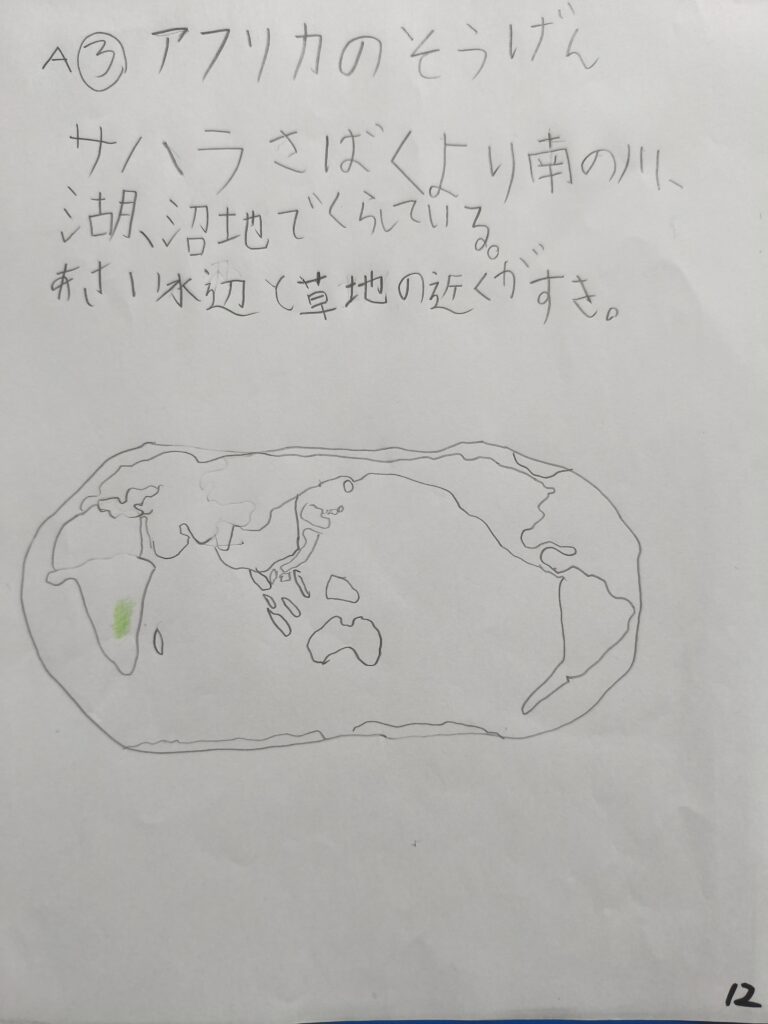 A③アフリカのそうげん
サハラさばくより南の川、
湖、沼地でくらしている。
あさい水辺と草地の近くがすき。
12